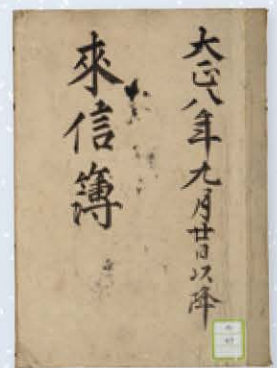 大正八年九月廿日以降
來信簿